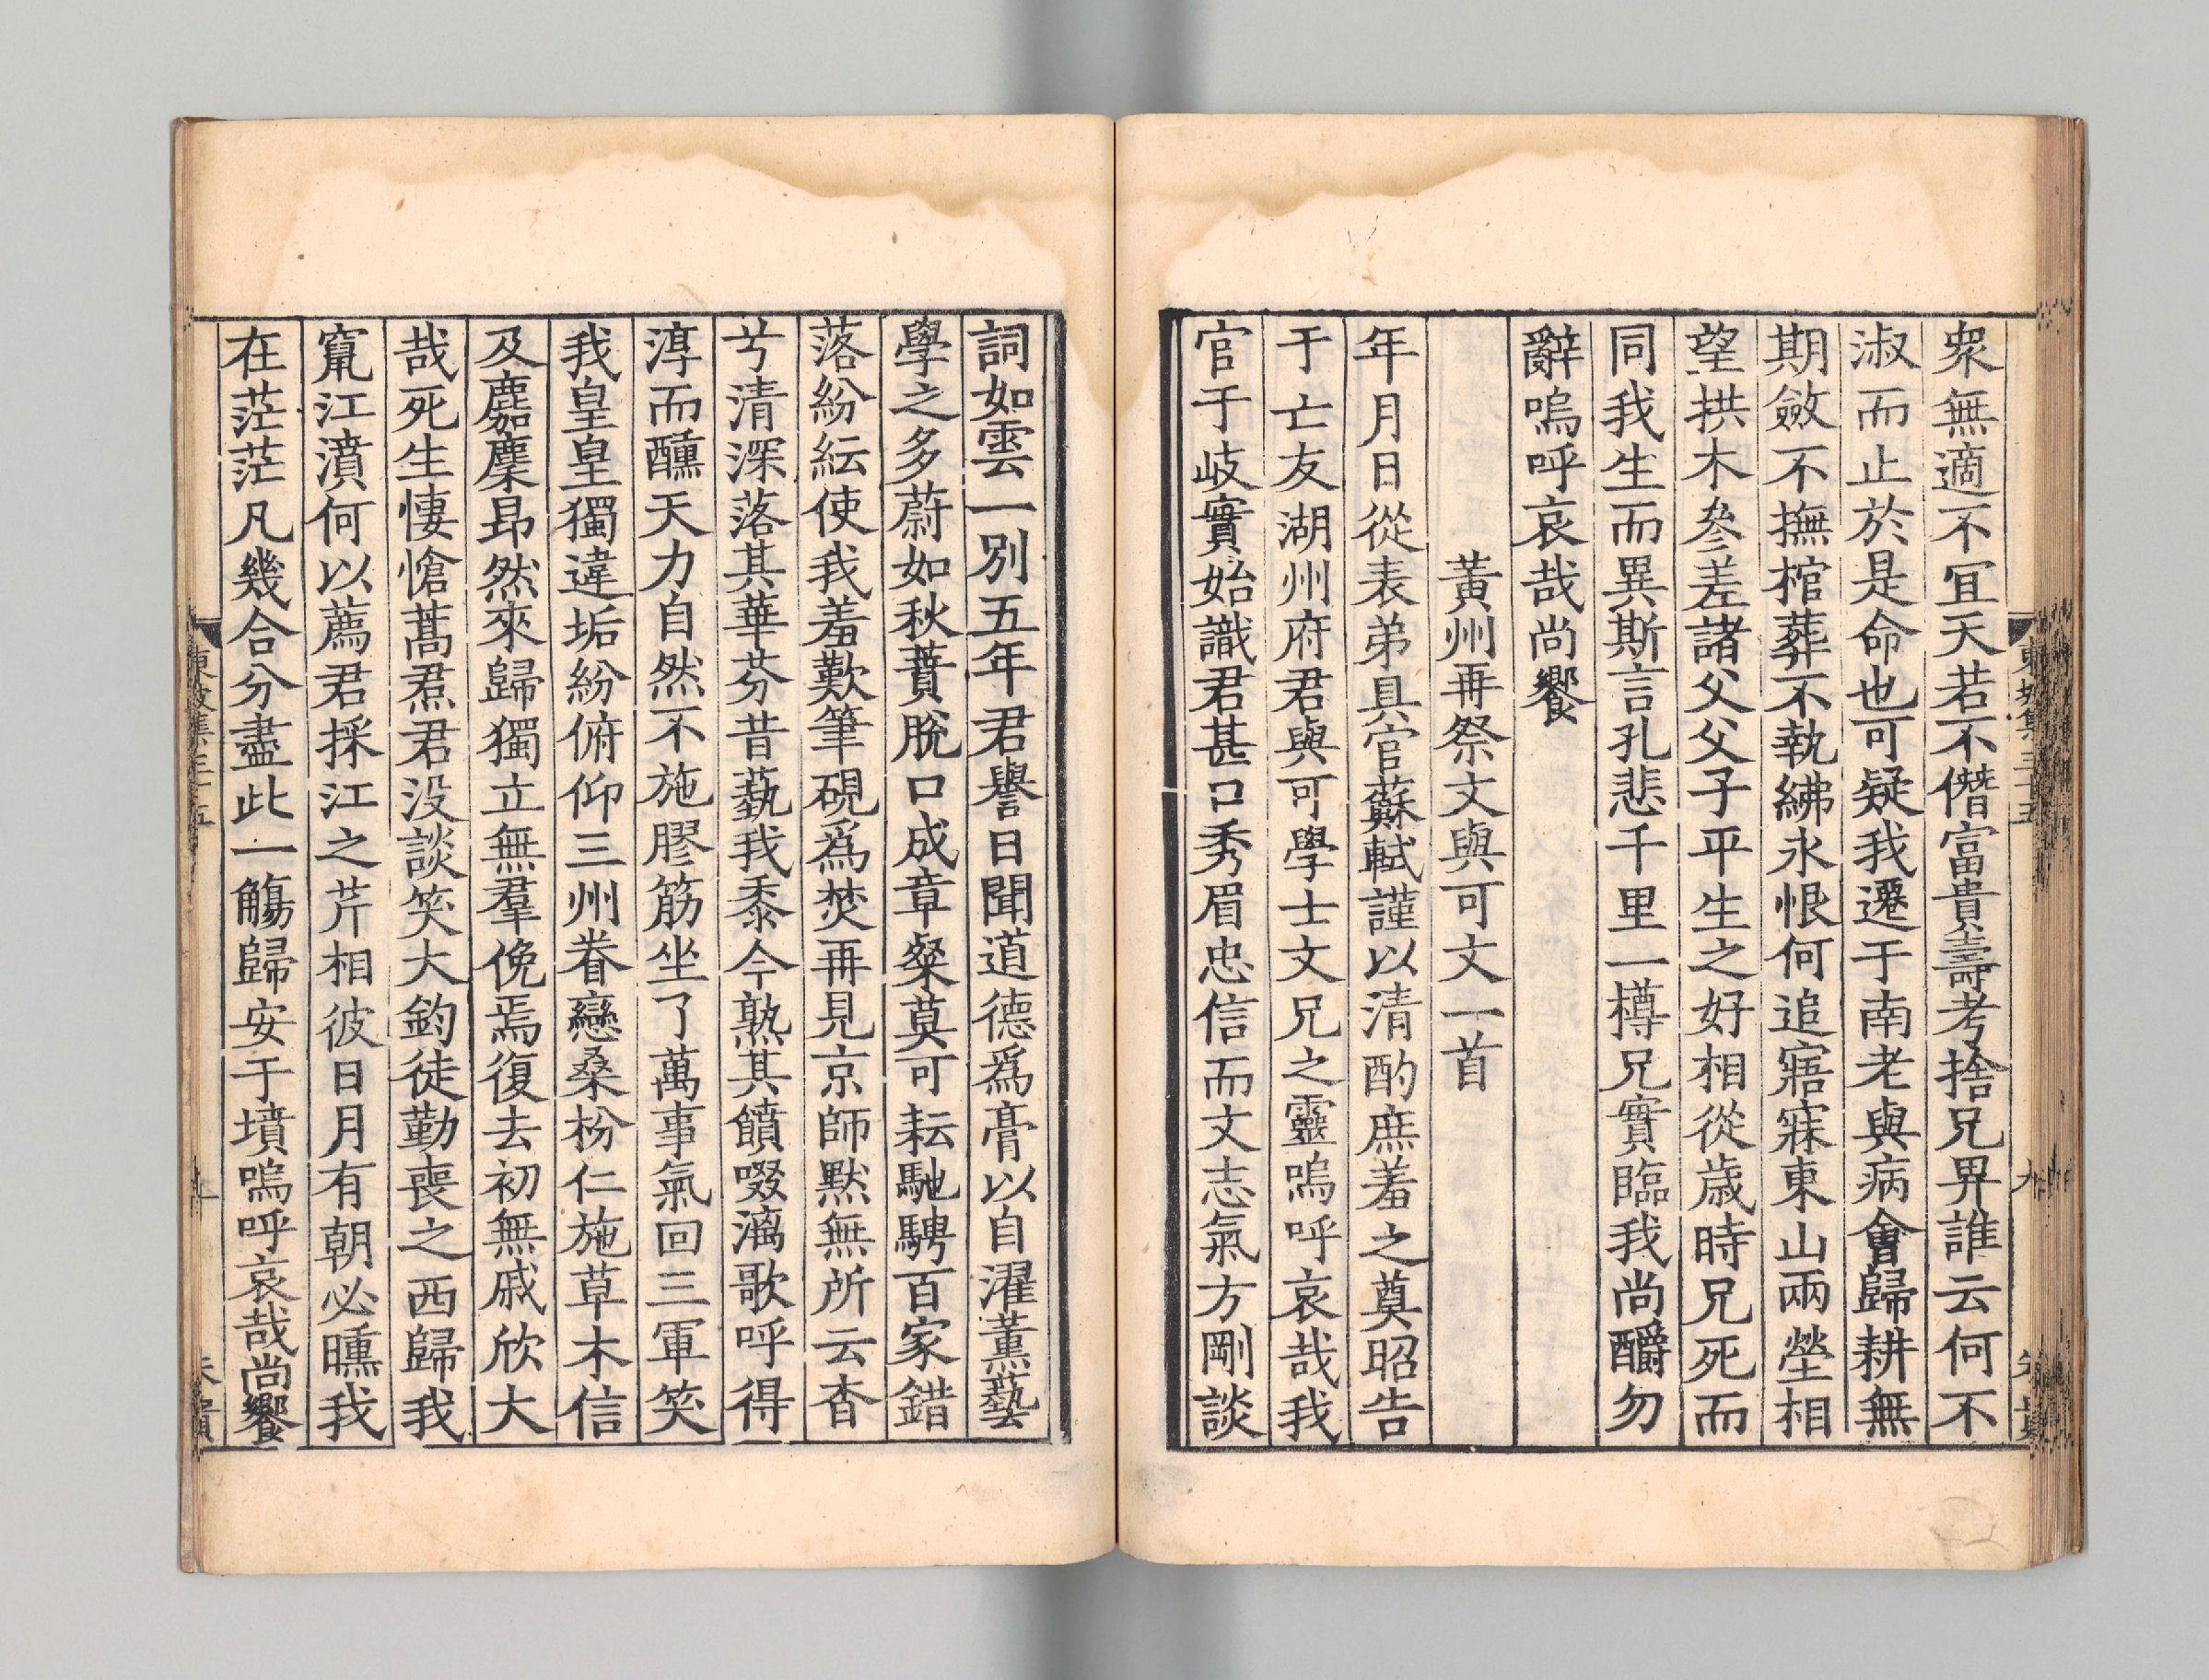 衆無適不冝天若不僭富貴壽考捨兄畀誰云何不
淑而止於是命也可疑我遷于南老與病會歸耕無
期斂不撫棺葬不執紼永恨何追寤寐東山兩塋相
望拱木叅差諸父父子平生之好相從歲時兄死而
同我生而異斯言孔悲千里一樽兄實臨我尚釂勿
辭嗚呼哀哉尚饗
黃州再祭文與可文一首
年月日從表弟具官蘇軾謹以清酌庶羞之奠昭告
于亡友湖州府君與可學士文兄之靈嗚呼哀哉我
官于岐實始識君甚口秀眉忠信而文志氣方剛談
詞如雲一別五年君譽日聞道德爲膏以自濯薰藝
學之多蔚如秋蕡脫口成章粲莫可耘馳騁百家錯
落紛紜使我羞歎筆硯爲焚再見京師默無所云杳
兮清深落其華芬昔蓺我黍今熟其饙啜漓歌呼得
淳而醺天力自然不施膠筋坐了萬事氣回三軍笑
我皇皇獨違垢紛俯仰三州眷戀桑枌仁施草木信
及麏麇昂然來歸獨立無羣俛焉復去初無戚欣大
哉死生悽愴蒿焄君没談笑大釣徒勤喪之西歸我
竁江濆何以薦君採江之芹相彼日月有朝必曛我
在茫茫凡幾合分盡此一觴歸安于墳嗚呼哀哉尚饗